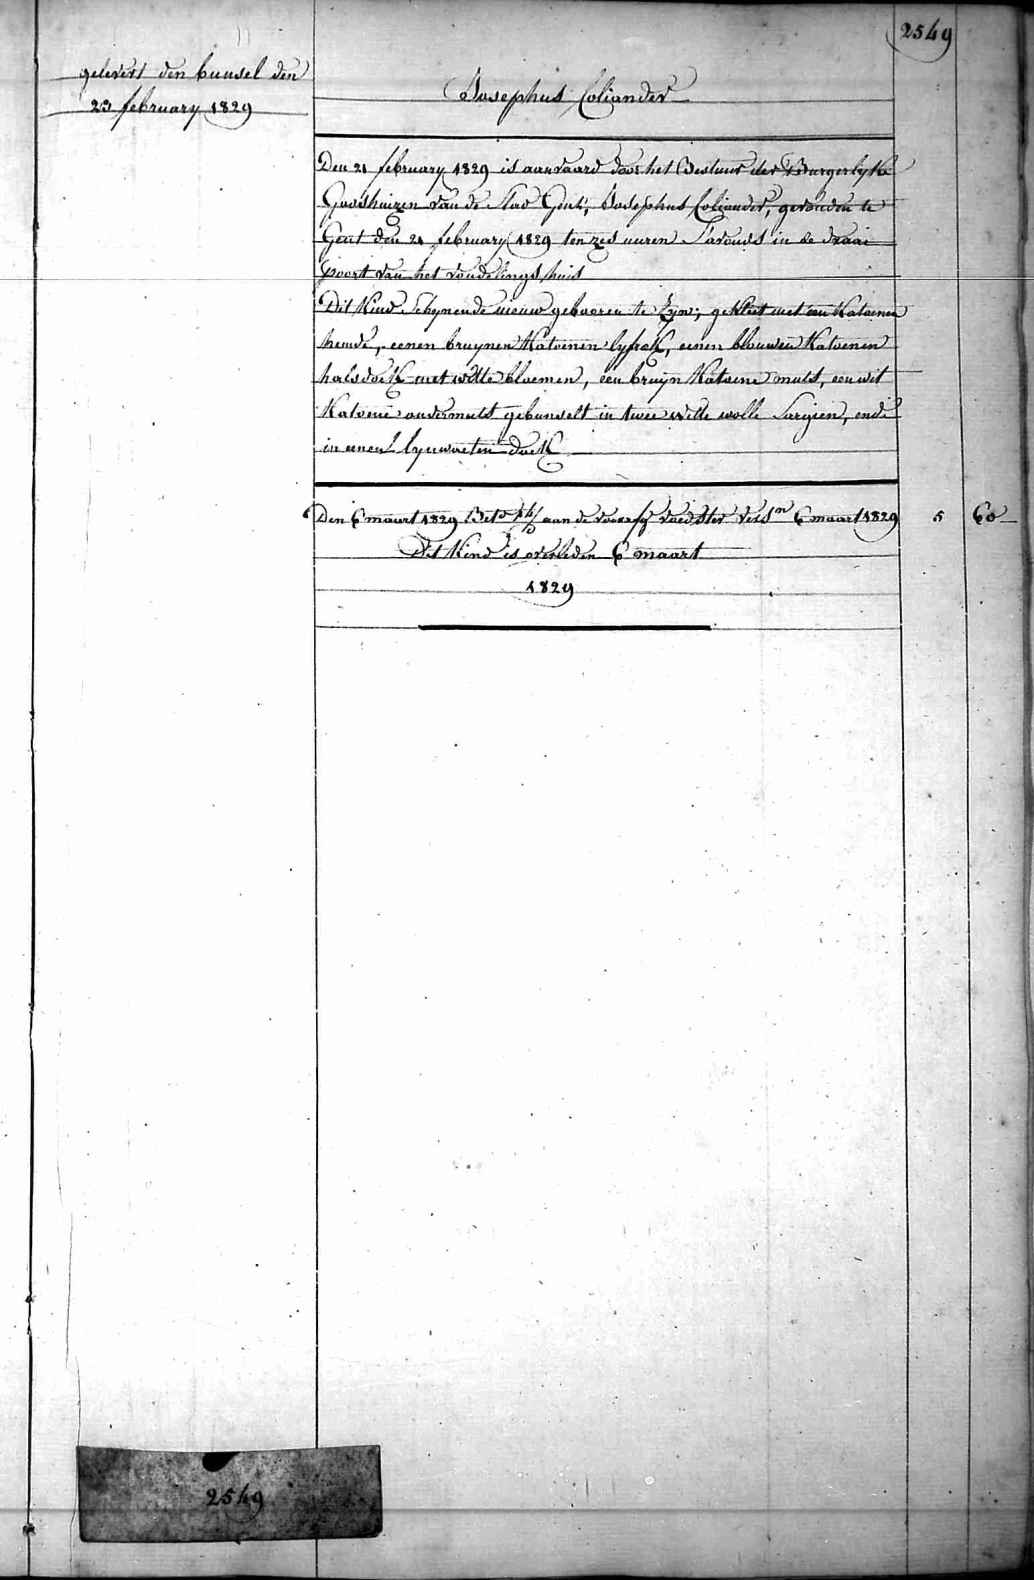 2549
gelevert den bunsel den
23 february 1829
Josephus Coliander
Den 21 february 1829 is aanvaard door het Bestuur der Burgerlyke
Godshuizen van de Stad Gent, Josephus Coliander, gevonden te
Gent den 21 february 1829 ten zes uuren S'avonds in de draai
poort van het vondelings huis
Dit Kind schynende nieuw gebooren te zyn; gekleet met een Katoenen
hemde, eenen bruynen Katoenen lyfrok, eenen blouwen Katoenen
halsdoek met witte bloemen, een bruyn Katoene muts, een wit
Katoene ondermuts gebunselt in twee witte wolle Sargien, ende
in eenen lynwaeten doek
Den 6 maart 1829 aan de voedster 6 maart 1829 5 60
Dit Kind is overleden 6 maart
1829
2549